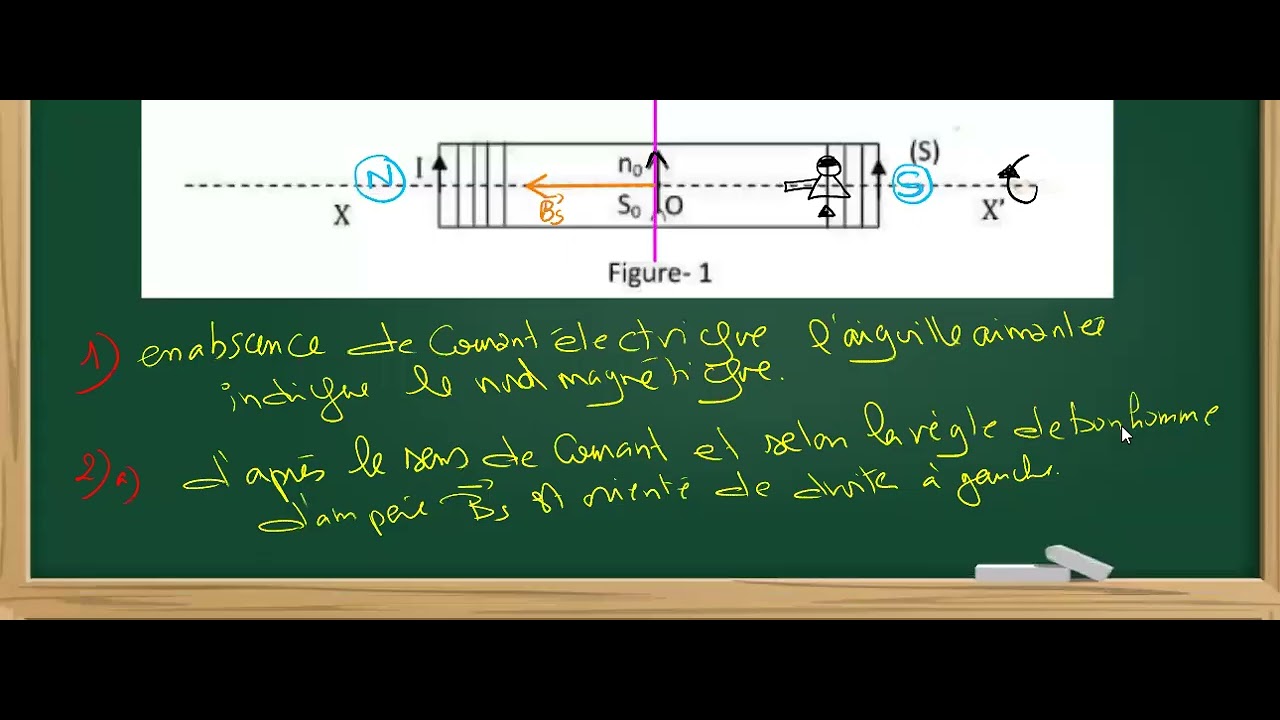 (S)
N I n₀ S
B⃗s S₀ O
X X'
Figure- 1
1) en absence de Courant électrique l'aiguille aimantée
indique le nord magnétique.
2) a) d'après le sens de Courant et selon la règle de bonhomme
d'ampère B⃗s est orienté de droite à gauche.